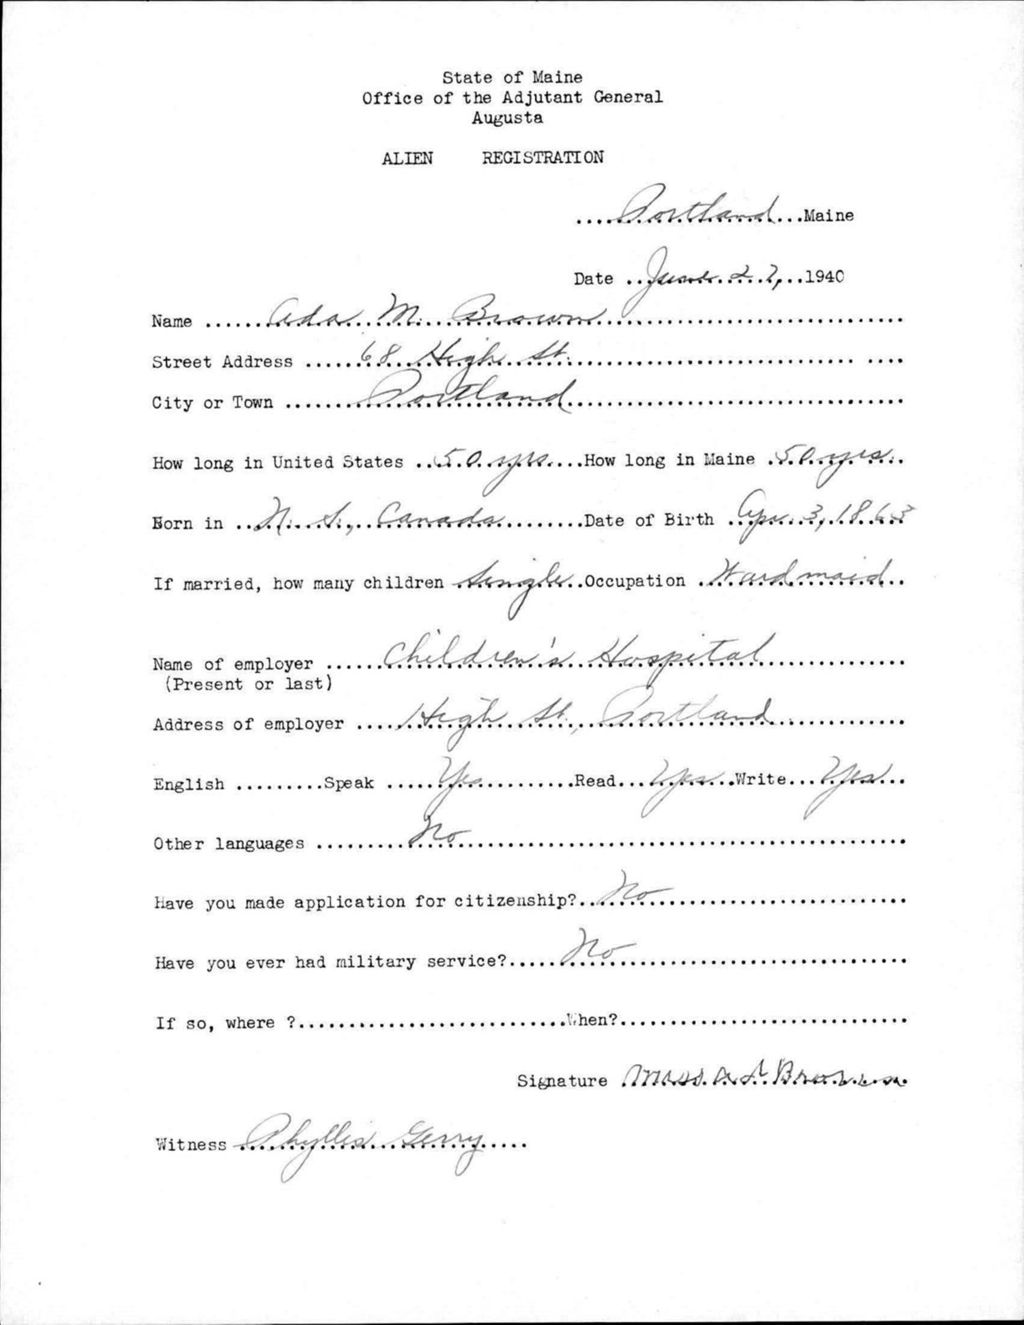 State of Maine
Office of the Adjutant General
Augusta
ALIEN REGISTRATION
....Portland...Maine
Date ..June 27,..1940
Name ......Ada M. Brown......
Street Address ......68 High St.......
City or Town .......Portland.......
How long in United States ..50 yrs....How long in Maine .50 yrs..
Born in ..N. S., Canada........Date of Birth ..Apr. 3, 1863
If married, how many children .Single..Occupation ..Ward maid..
Name of employer .....Children's Hospital......
(Present or last)
Address of employer ....High St., Portland......
English .........Speak .....Yes..........Read...Yes...Write...Yes...
Other languages .........No......
Have you made application for citizenship?..No......
Have you ever had military service?.....No......
If so, where ?...........................When?............................
Signature .Miss. Brown.
Witness .Phyllis Gerry.....